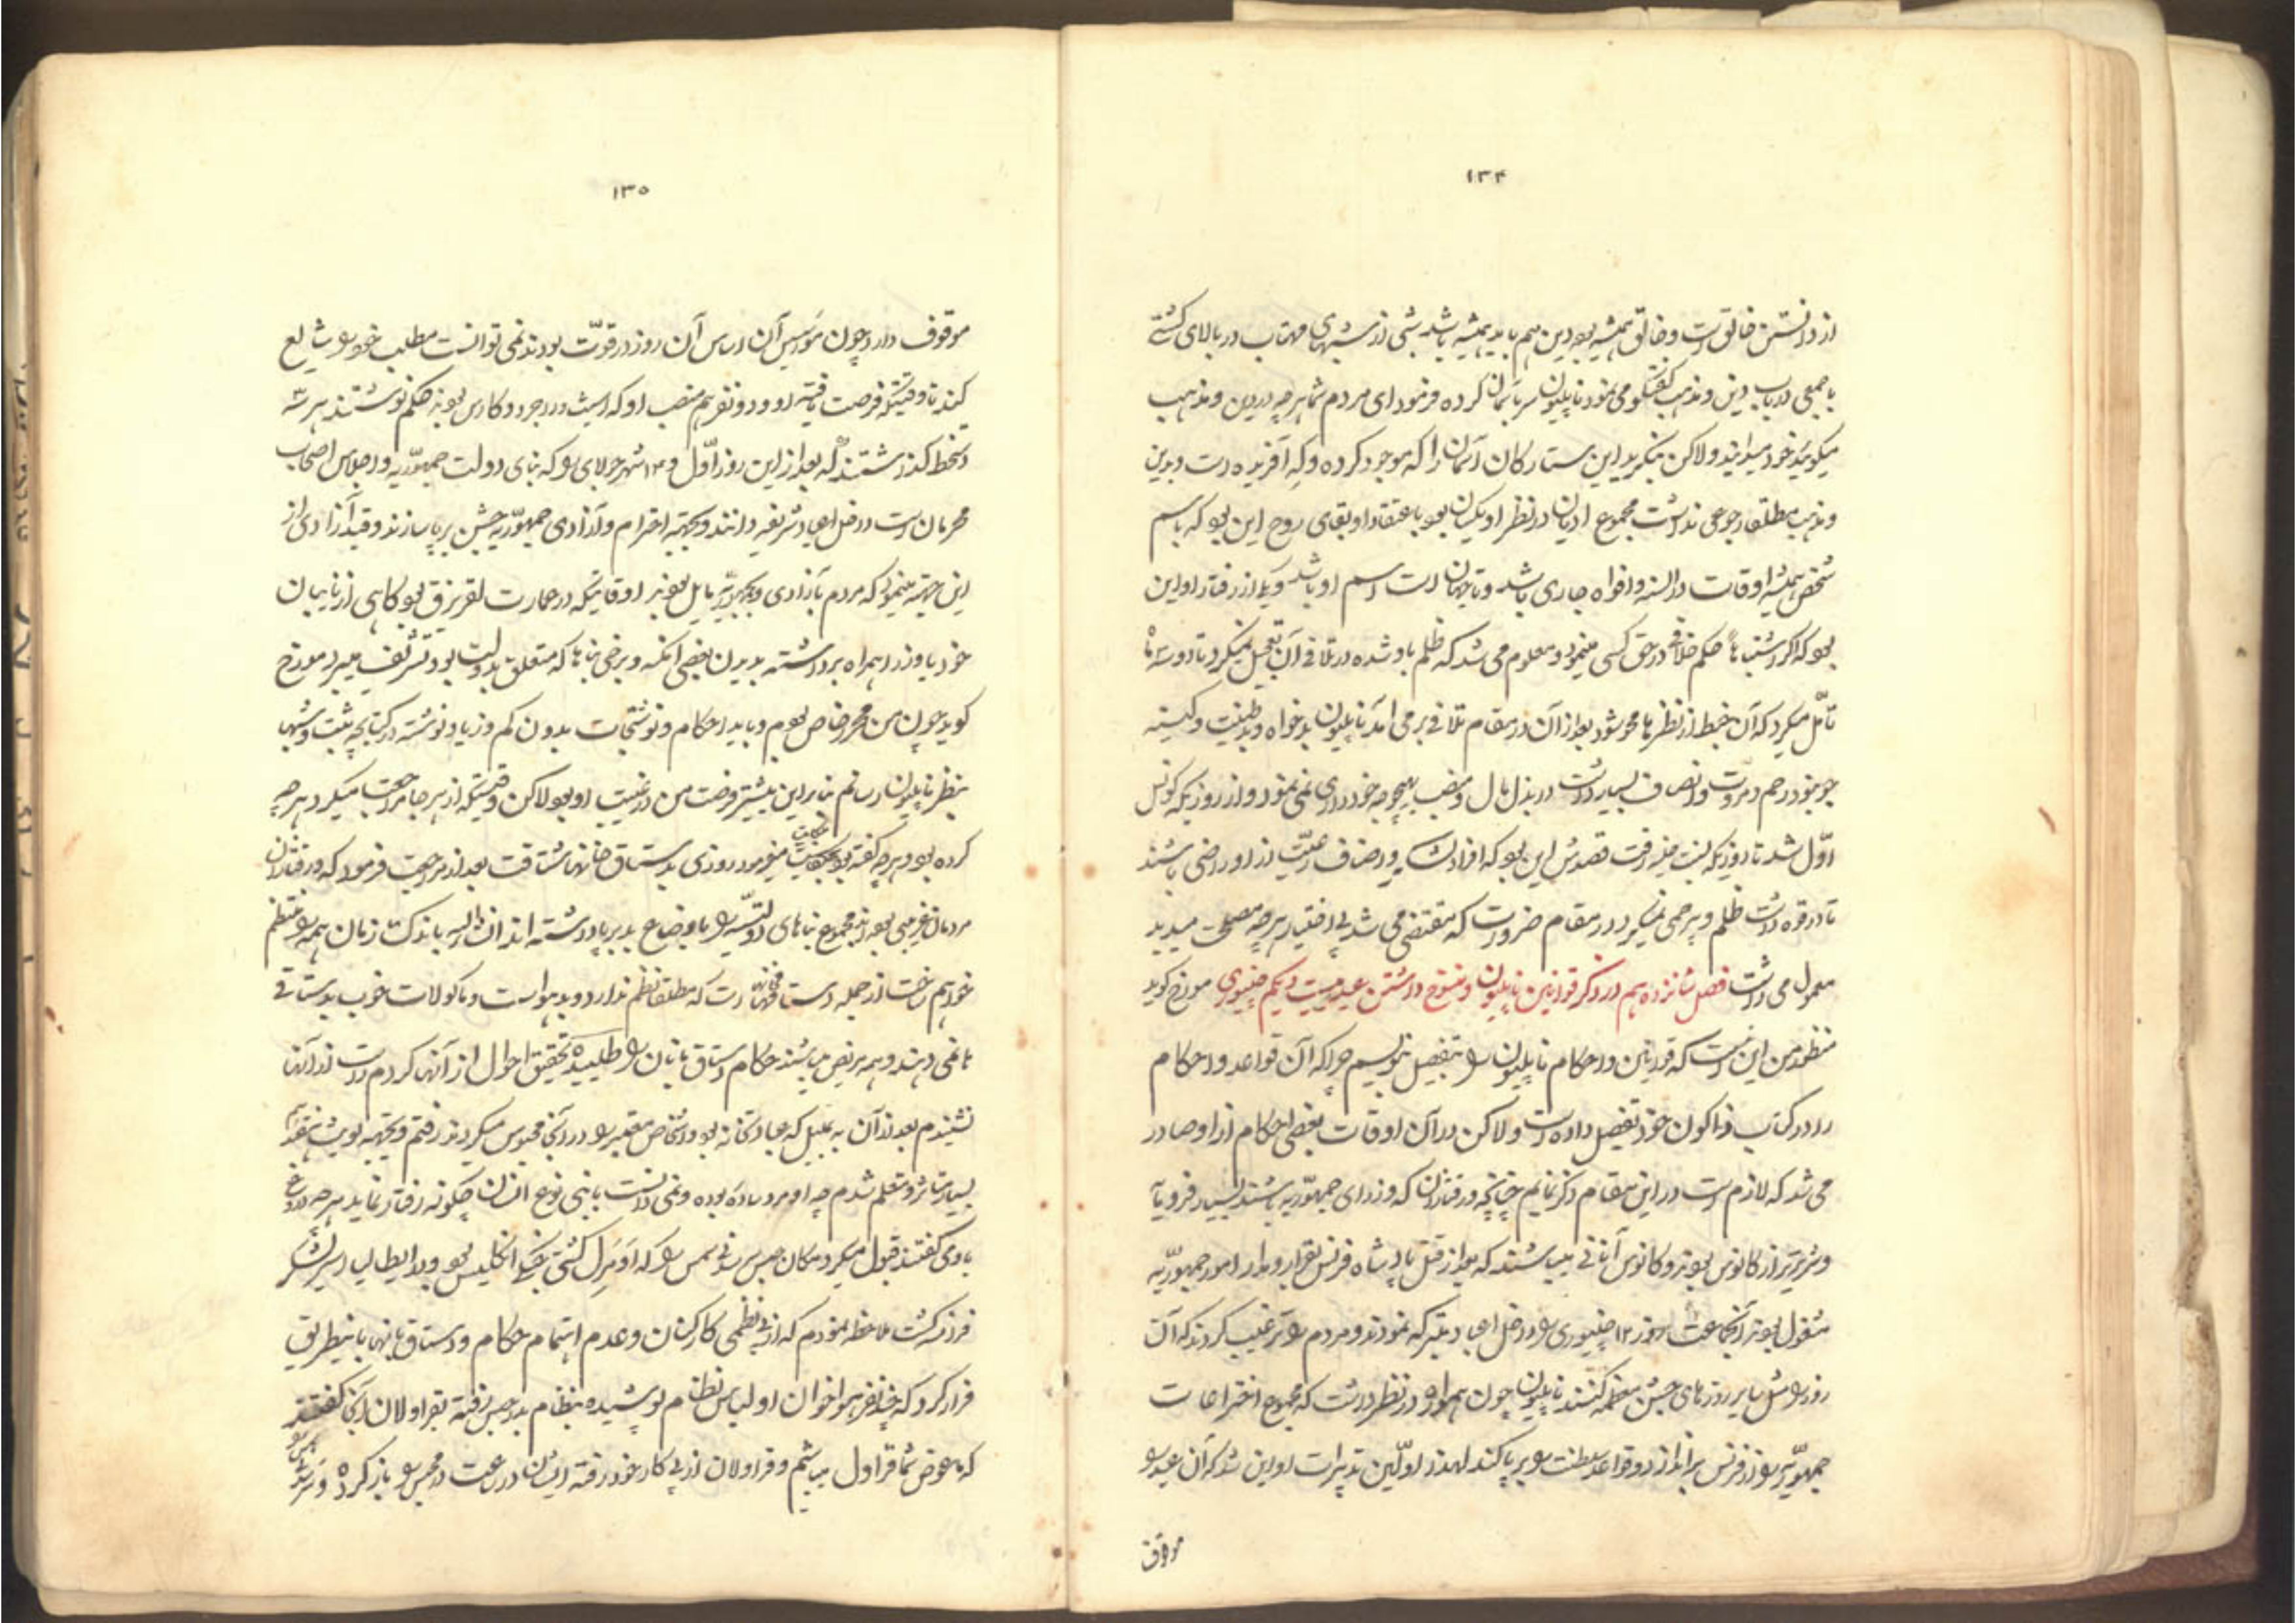 ۱۳۴
از دانستن خالق است و خالق همیشه بود دین هم باید همیشه باشد شبی از شبهای مهتاب در بالای کشتی
با جمعی در باب دین و مذهب گفتگو می نمود ناپلیون سر بآسمان کرده فرمود ای مردم شما هر چه در دین و مذهب
میگوئید خود میدانید ولاکن بنگرید این ستارگان آسمان را که موجود کرده و که آفریده است و بدین
و مذهب مطلقا رجوعی نداشت مجموع ادیان در نظر او یکسان بود باعتقاد او بقای روح این بود که باسم
شخص همیشه اوقات در السنه و افواه جاری باشد و تا جهان است اسم او باشد و یکی از رفتار او این
بود که اگر اشتباها حکم خلافی در حق کسی مینمود و معلوم می شد که ظلم باو شده در تلافی آن تعجیل نمیکرد تا دو سه ماه
تأمل میکرد که آن خبط از نظرها محو شود بعد از آن در مقام تلافی بر می آمد ناپلیون بدخواه و بدطینت و کینه
جو نبود رحم و مروت و انصاف بسیار داشت در بذل مال و منصب بهیچوجه خودداری نمی نمود و از روزیکه کونسل
اول شد تا روزیکه بسنت هلنه رفت قصدش این بود که افراد ناس و اصناف رعیت از او راضی باشند
تا در قوه داشت ظلم و بیرحمی نمیکرد در مقام ضرورت که مقتضی می شد بی اختیار هر چه مصلحت میدید
معمول می داشت فصل شانزدهم در ذکر قوانین ناپلیون و منسوخ داشتن عید بیست و یکم جنیوری مورخ گوید
منظور من این نیست که قوانین و احکام ناپلیون را بتفصیل بنویسم چرا که آن قواعد و احکام
را در کتاب ذاکون خود تفصیل داده است ولاکن در آن اوقات بعضی احکام از او صادر
می شد که لازم است در این مقام ذکر نمایم چنانچه در رفتارشان که وزرای جمهوریه باشند بسیار فرومایه
و شریرتر از کانوس بودند و کانوس آنانی میباشند که بعد از قتل پادشاه فرنس بقرار و مدار امور جمهوریه
مشغول بودند آنجماعت روز ۲۱ جنیوری را داخل اعیاد متبرکه نمودند و مردم را ترغیب کردند که آن
روز را مثل سایر روزهای جشن معظمه کنند ناپلیون چون همواره در نظر داشت که مجموع اختراعات
جمهوریه را از فرنس براندازد و قواعد سلطنت را برپا کند لهذا اولین تدبیرات او این شد که آن عید را
موقوف
۱۳۵
موقوف دارد چون مؤسس آن اساس آن روز در قوت بودند نمی توانست مطلب خود را شایع
کند تا وقتیکه فرصت یافته او و دو نفر هم منصب او که در دوکارس بودند حکم نوشتند هر سه
دستخط گذاشتند که بعد از این روز اول و ۱۴ شهر جولای را که بنای دولت جمهوریه و اجلاس اصحاب
محرمان است داخل اعیاد شریفه دانند و بجهة احترام و آزادی جمهوریه جشن برپا سازند و قید آزادی از
این جهة مینمود که مردم بآزادی و جمهوریه مایل بودند اوقاتیکه در عمارت لقزنرق بود گاهی از نایبان
خود یا وزرا همراه برداشته بدیدن بعضی امکنه و برخی بناها که متعلق بدولت بود تشریف میبرد مورخ
گوید چون من محرر خاص بودم و باید احکام و نوشتجات بدون کم و زیاد نوشته در کتابچه ثبت و شبها
بنظر ناپلیون رسانم بنابراین بیشتر فرصت من در غیبت او بود لاکن وقتیکه از هر جا مراجعت میکرد هر چه
کرده بود و هر چه گفته بود حکایت میفرمود روزی بدستاق خانها شتافت بعد از مراجعت فرمود که در رفتارشان
مردمان غریبی بودند مجموع بناهای دولتیه را باوضاع بد برپا داشته اند ان شاء الله باندک زمان همه را منتظم
خواهم ساخت از جمله دستاقخانهاست که مطلقا نظم ندارد و بد هواست و مأکولات خوب بدستاقی
ها نمی دهند و همه مریض میباشند حکام دستاق بانان را طلبیده تحقیق احوال از آنها کردم درست از آنها
نشنیدم بعد از آن به تمپل که عبادتخانه بود و اشخاص معتبر را در آنجا محبوس میکردند رفتم و بجهة لویث شانزدهم
بسیار متأثر و متألم شدم چه او مرد ساده بوده و نمی دانست با بنی نوع انسان چگونه رفتار نماید هر چه دروغ
باوی گفتند قبول میکرد مکان حبس سدنی سمس را که آدمرل کشتی جنگی انگلیس بود و در ایطالیا اسیر لشکر
فرنسه گشت ملاحظه نمودم که از بی نظمی کارکنان و عدم اهتمام حکام و دستاق بانها باینطریق
فرار کرد که چند نفر هواخوان او لباس نظام پوشیده بنظام بدر حبس رفته بقراولان آنجا گفتند
که ما عوض شما قراول میباشیم و قراولان از پی کار خود رفته ایشان در ساعت در محبس را باز کرده و سدنی سمس را